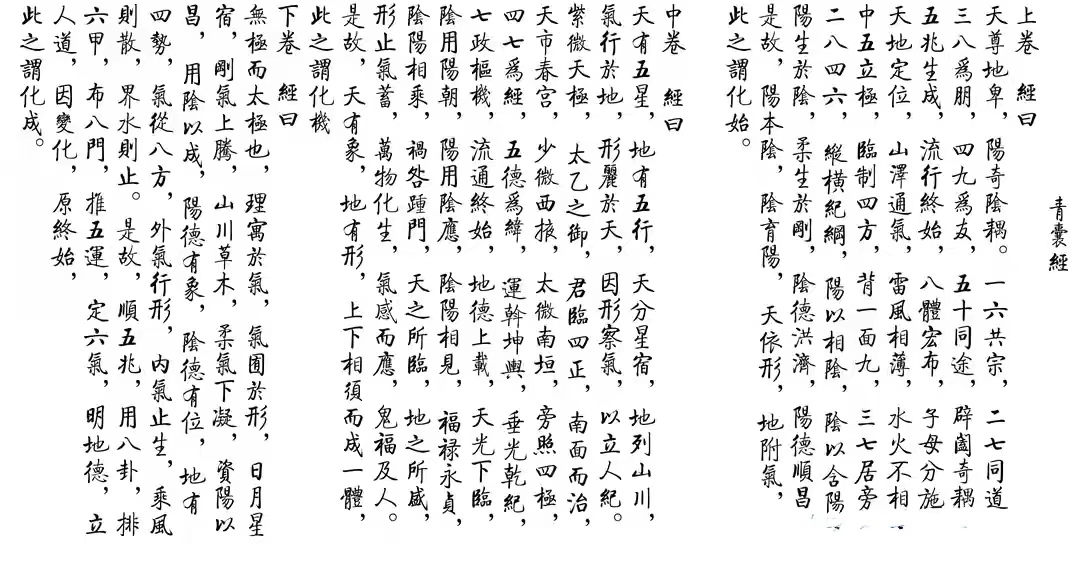 青囊經
上卷　經曰
天尊地卑，陽奇陰耦。一六共宗，二七同道
三八爲朋，四九爲友，五十同途，辟闔奇耦
五兆生成，流行終始，八體宏布，子母分施
天地定位，山澤通氣，雷風相薄，水火不相
中五立極，臨制四方，背一面九，三七居旁
二八四六，縱橫紀綱，陽以相陰，陰以含陽
陽生於陰，柔生於剛，陰德洪濟，陽德順昌
是故，陽本陰，陰育陽，天依形，地附氣，
此之謂化始。
中卷　經曰
天有五星，地有五行，天分星宿，地列山川，
氣行於地，形麗於天，因形察氣，以立人紀。
紫微天極，太乙之御，君臨四正，南面而治，
天市春宮，少微西掖，太微南垣，旁照四極，
四七爲經，五德爲緯，運斡坤輿，垂光乾紀，
七政樞機，流通終始，地德上載，天光下臨，
陰用陽朝，陽用陰應，陰陽相見，福祿永貞，
陰陽相乘，禍咎踵門，天之所臨，地之所盛，
形止氣蓄，萬物化生，氣感而應，鬼福及人。
是故，天有象，地有形，上下相須而成一體，
此之謂化機
下卷　經曰
無極而太極也，理寓於氣，氣囿於形，日月星
宿，剛氣上騰，山川草木，柔氣下凝，資陽以
昌，用陰以成，陽德有象，陰德有位，地有
四勢，氣從八方，外氣行形，內氣止生，乘風
則散，界水則止。是故，順五兆，用八卦，排
六甲，布八門，推五運，定六氣，明地德，立
人道，因變化，原終始，
此之謂化成。